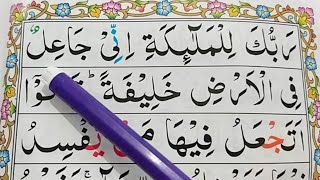 رَبُّكَ لِلْمَلٰٓئِكَةِ اِنِّيْ جَاعِلٌ
فِي الْاَرْضِ خَلِيْفَةً ؕ
اَتَجْعَلُ فِيْهَا مَنْ يُّفْسِدُ